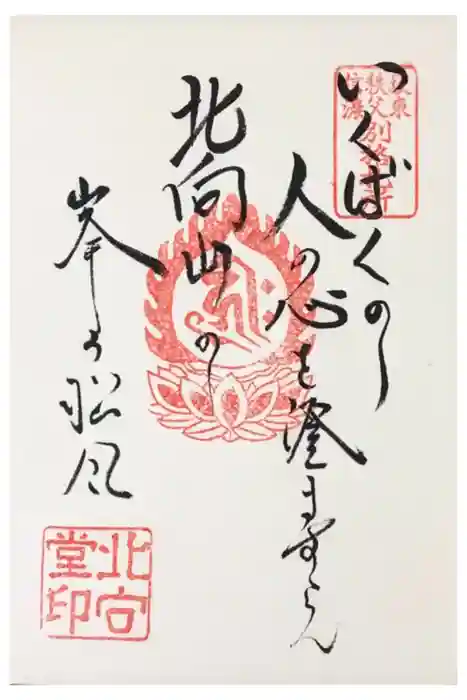 坂東
秩父
別格
いくばくの
人の心を澄ますらん
北向山の
峯の松風
北向
堂印